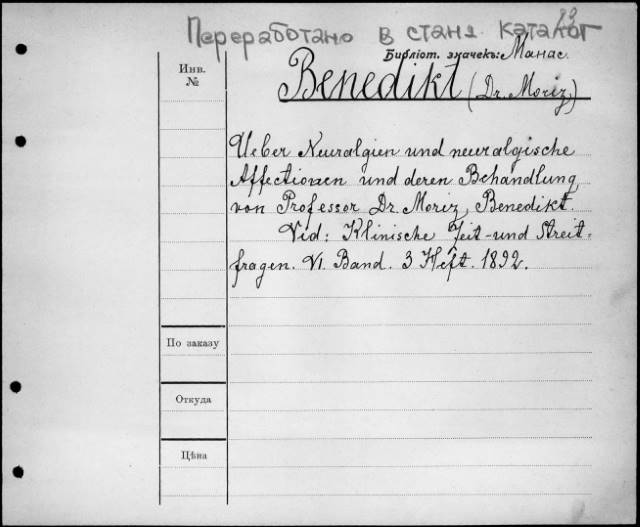 23
Переработано в станд. каталог
Библіот. значекъ: Манас.
Инв. №
Benedikt (Dr. Moriz)
Ueber Neuralgien und neuralgische
Affectionen und deren Behandlung
von Professor Dr. Moriz Benedikt.
Vid: Klinische Zeit- und Streit-
fragen. VI. Band. 3 Heft. 1892.
По заказу
Откуда
Цѣна